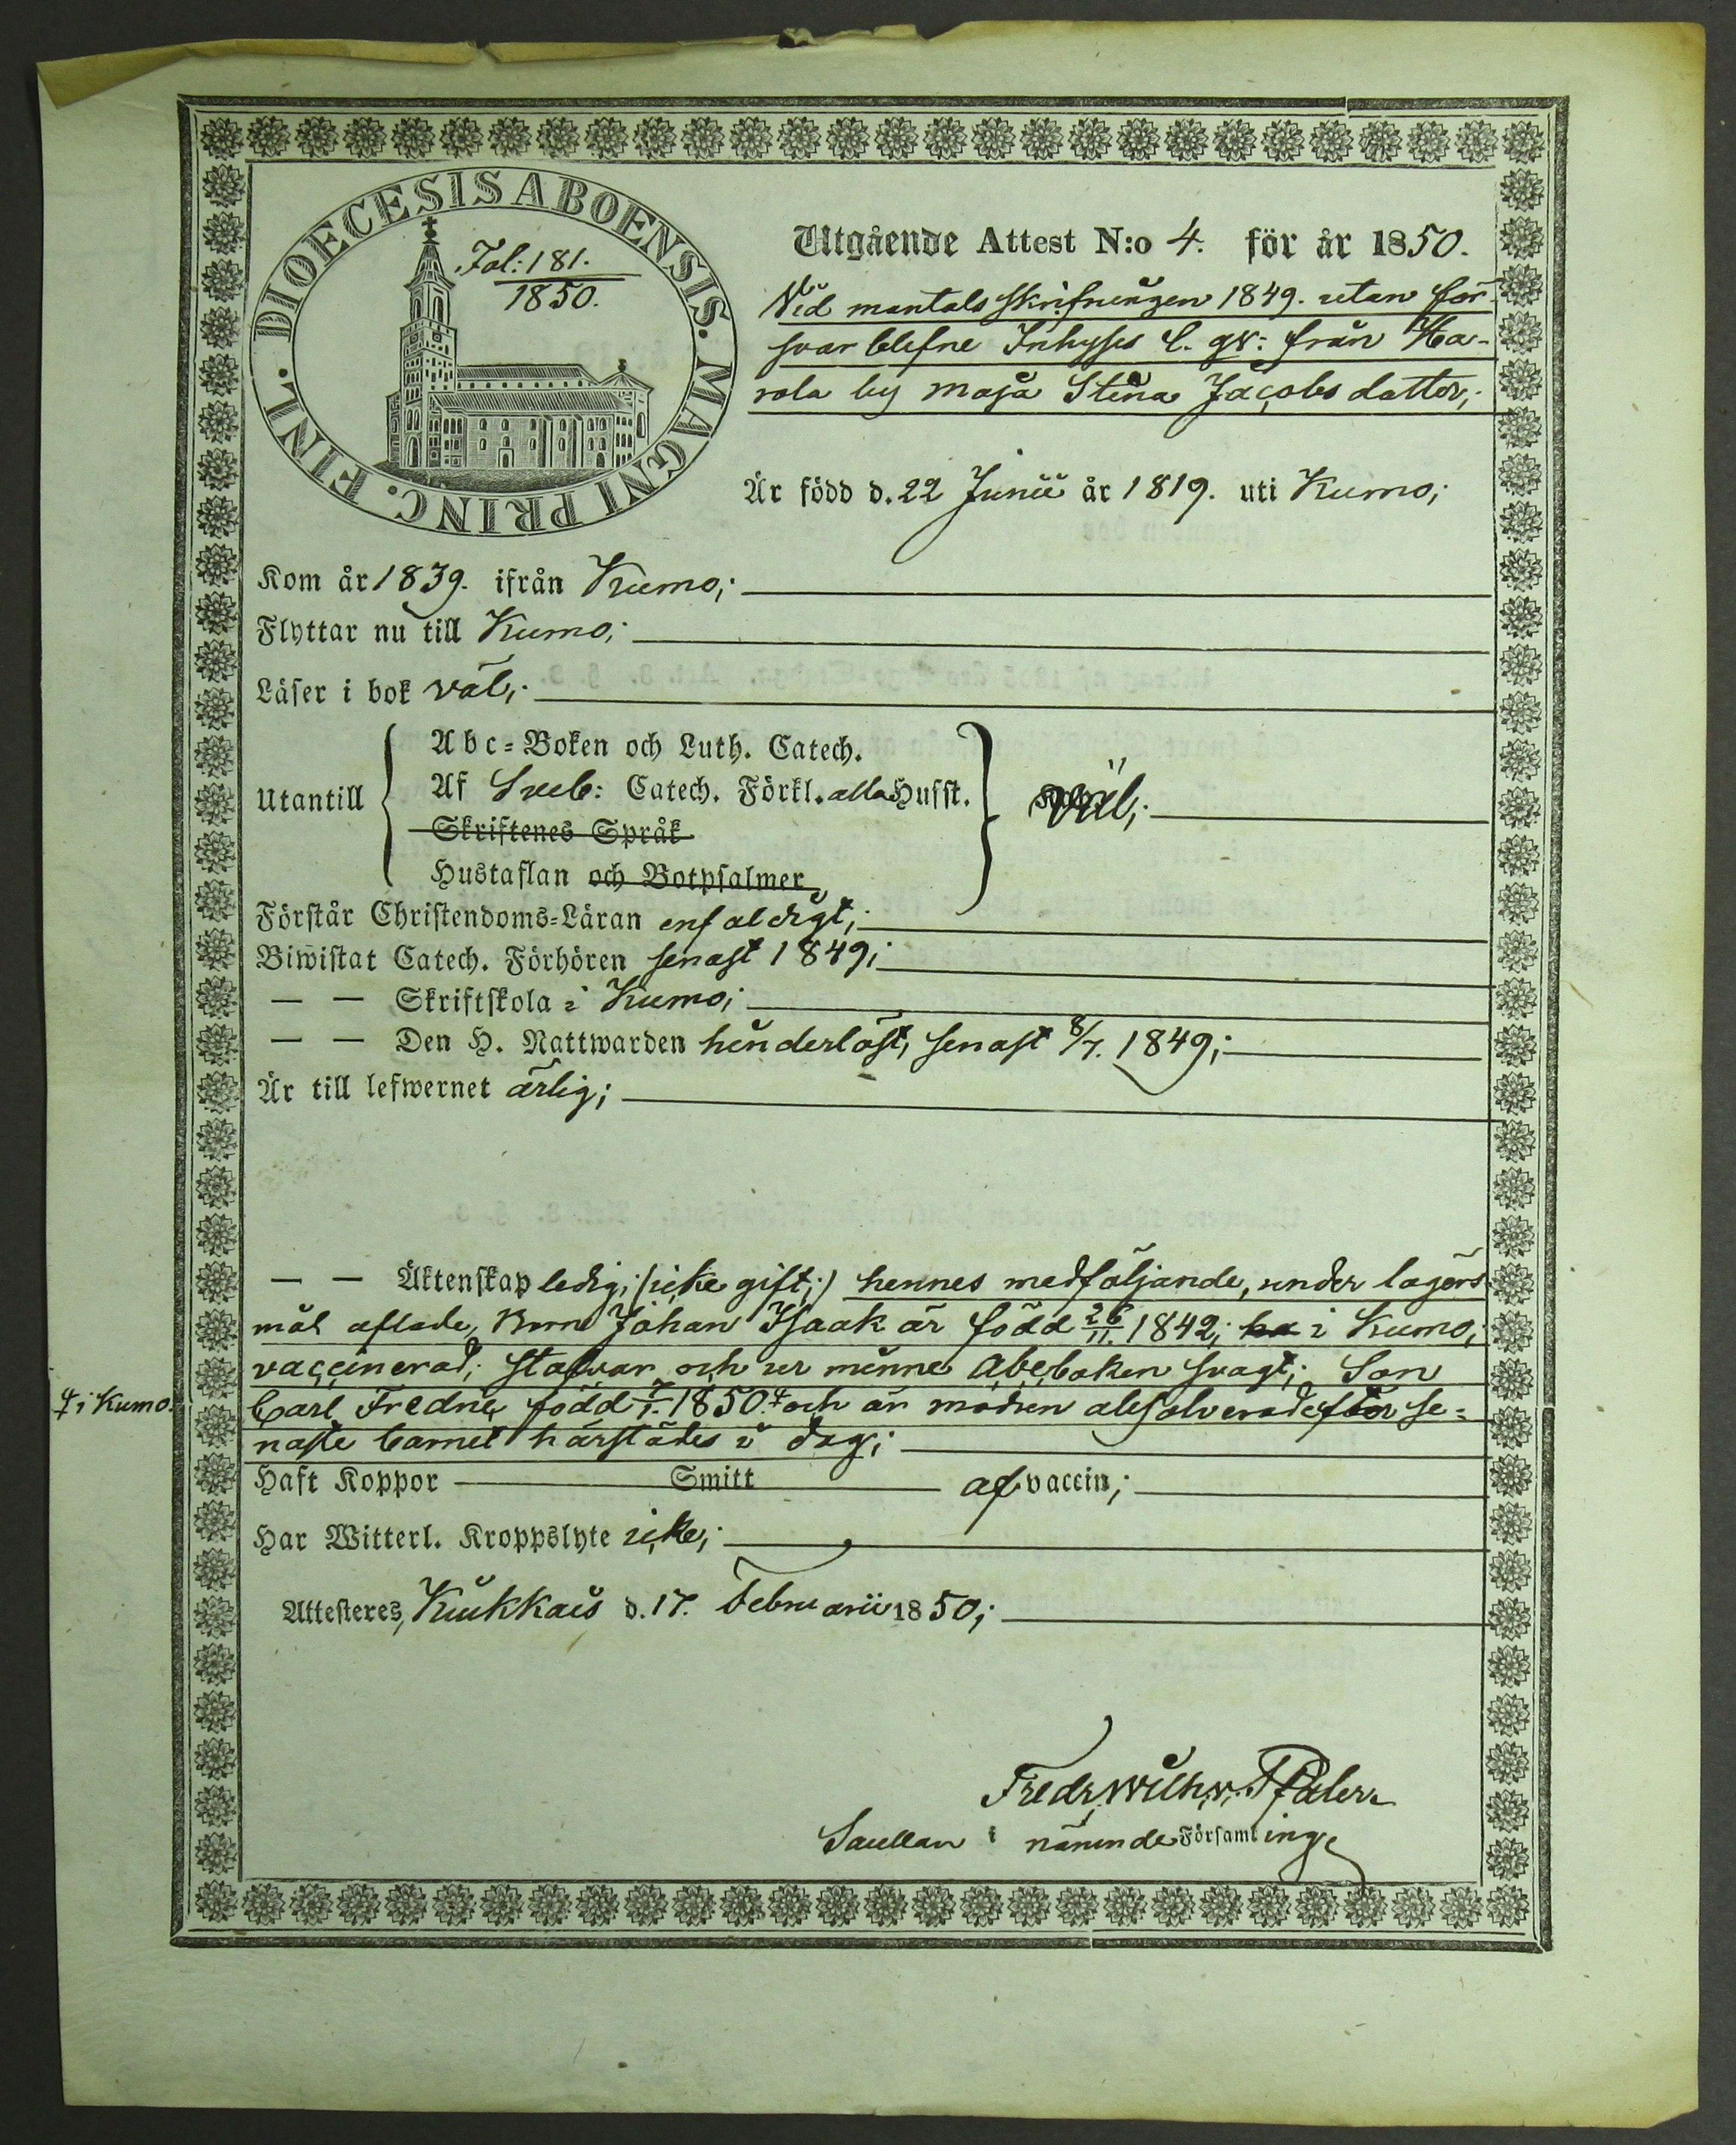 DIOECESIS ABOENSIS. MAGNI PRINC. FINL.
Fol: 181.
1850.
Utgående Attest N:o 4. för år 1850.
Vid mantals skrifningen 1849. utan för-
svar blefne Inhyses från Ha-
rola by Maja Stina Jacobs dotter;
Är född d. 22 Junii år 1819. uti Kumo;
Kom år 1839. ifrån Kumo;
Flyttar nu till Kumo;
Läser i bok väl;
Utantill
Abc-Boken och Luth. Catech.
Af Sveb: Catech. Förkl. alla Husst.
Skriftenes Språk
Hustaflan och Botpsalmer
väl;
Förstår Christendoms-Läran enfaldigt;
Biwistat Catech. Förhören senast 1849;
— — Skriftskola i Kumo;
— — Den H. Nattwarden hinderlöst, senast 8/7. 1849;
Är till lefwernet ärlig;
— — Äktenskap ledig, (icke gift;) hennes medföljande, under lägers
mål aflade, Johan Isaak är född 26/11. 1842; i Kumo;
vaccinerad; stafvar och ur minne abc boken svagt; Son
Carl Fredric född 1850. och är modren absolverad efter se-
naste barnet härstädes i dag;
‡ i Kumo.
Haft Koppor — Smitt — af vaccin;
Har Witterl. Kroppslyte icke;
Attesteres, Kiukkais d. 17. Februarii 1850;
Fredr. Wilh.
i nämnde Församling